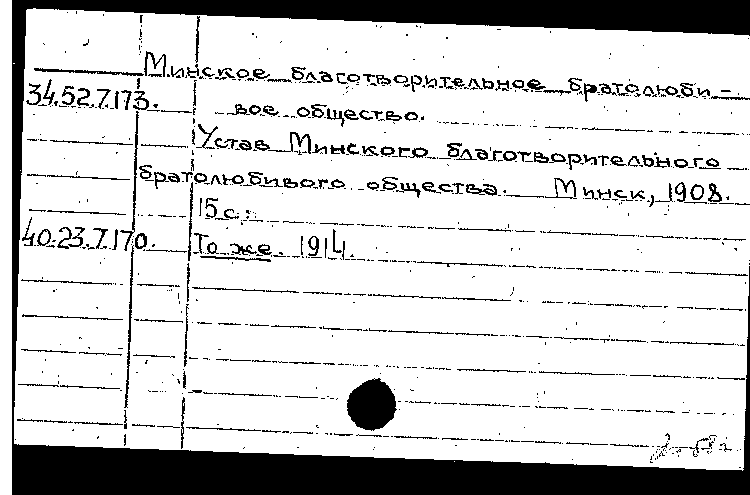 Минское благотворительное братолюби-
34.52.7.173. вое общество.
Устав Минского благотворительного
братолюбивого общества. Минск, 1908.
15 с.
40.23.7.170. То же. 1914.